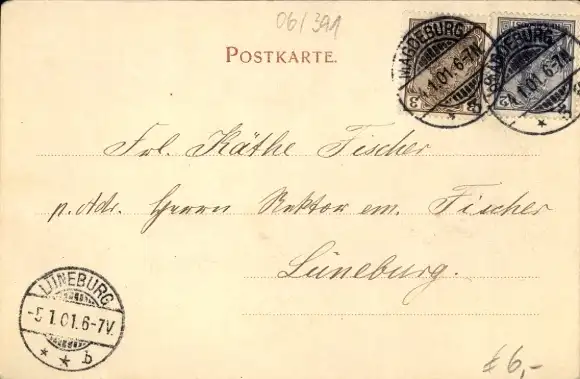 06/391
POSTKARTE.
MAGDEBURG
4.1.01.6-7N.
3
MAGDEBURG
4.1.01.6-7N.
Frl. Käthe Fischer
p. Adr. Herrn Rektor em. Fischer
Lüneburg.
LÜNEBURG
-5.1.01.6-7V.
* * b
£ 6,-